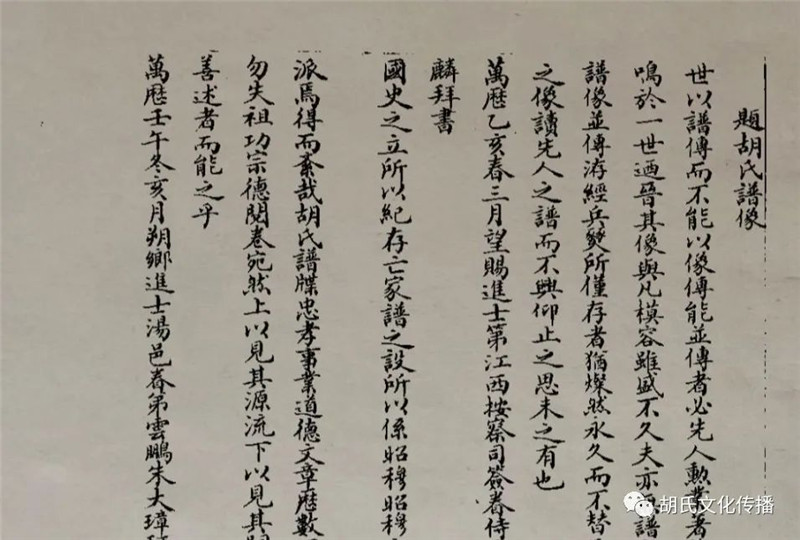 題胡氏譜像
世以譜傳而不能以像傳能並傳者必先人勳業著
鳴於一世迺晉其像與凡模容雖盛不久夫亦譜
譜像並傳洊經兵燹所僅存者猶燦然永久而不替
之像讀先人之譜而不興仰止之思未之有也
萬歷乙亥春三月望賜進士第江西按察司簽眷侍
麟拜書
國史之立所以紀存亡家譜之設所以係昭穆昭穆
派焉得而紊哉胡氏譜牒忠孝事業道德文章歷數
勿失祖功宗德閱卷宛然上以見其源流下以見其
善述者而能之乎
萬歷壬午冬亥月朔鄉進士湯邑眷第雲鵬朱大璋
胡氏文化传播